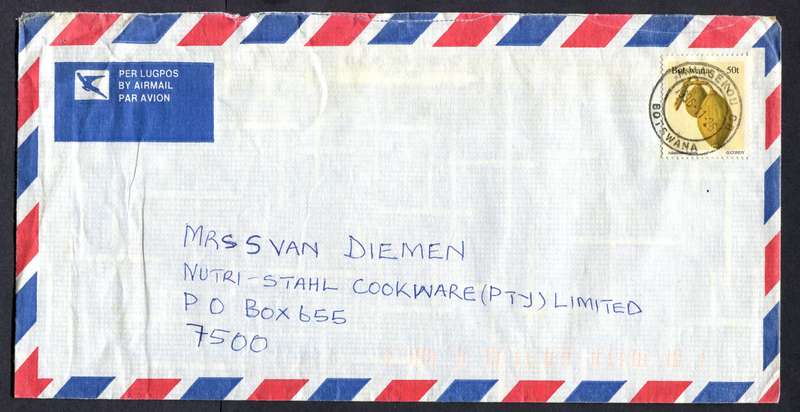 PER LUGPOS
BY AIRMAIL
PAR AVION
Botswana 50t
BOTSWANA
MRS S VAN DIEMEN
NUTRI-STAHL COOKWARE (PTY) LIMITED
P O BOX 655
7500